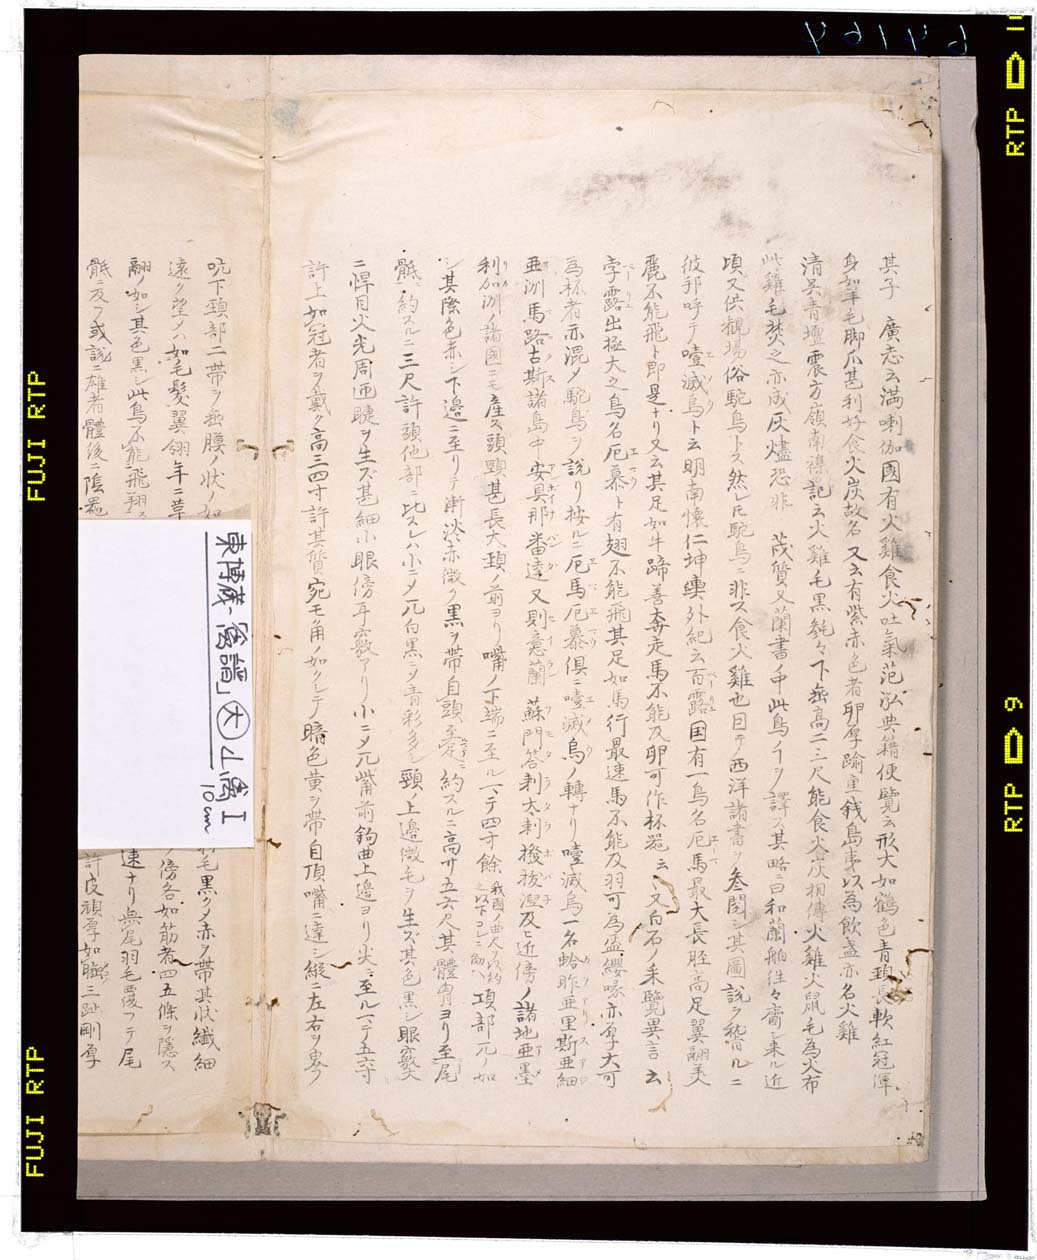 其子 廣志云満喇伽國有火雞食火吐氣范泓典籍便覽云形大如鶴色青頚長軟紅冠渾
身如羊毛脚爪甚利好食火炭故名又云有紫赤色者卵厚踰重銭島夷以為飲盞亦名火雞
清呉青壇震方嶺南襍記云火雞毛黒毿々下垂高二三尺能食火炭相傳火雞火鼠ノ毛為火布
此雞毛焚之亦成灰燼恐非 茂質又蘭書ノ中此鳥ノヿヲ譯ス其略ニ曰和蘭舶往々齎シ来ル近
頃又供觀場俗駝鳥トス然レ𪜈駝鳥ニ非ス食火雞也因テ西洋諸書ヲ叅閲シ其圖説ヲ誊ルニ
彼邦呼テ噎滅烏ト云明南懷仁坤輿外紀云百露国有一鳥名厄馬最大長脛高足翼翮美
麗不能飛ト即是ナリ又云其足如牛蹄善奔走馬不能及卵可作杯器云々又白石ノ采覽異言ニ云
孛露出極大之鳥名厄慕ト有翅不能飛其足如馬行最速馬不能及羽可為盔纓喙亦厚大可
為杯者亦混メ駝鳥ヲ説リ按ルニ厄馬厄慕倶ニ噎滅烏ノ轉ナリ噎滅烏一名蛤昨亜里斯亜細
亜洲馬路古斯諸島中安具那番達又則意蘭 蘇門答剌太剌撥抜溼及ヒ近傍ノ諸地亜墨
利加洲ノ諸國ニモ産ス頭頸甚長大頚ノ前ヨリ嘴ノ下端ニ至ルヿテ四寸餘 我國ノ曲尺ヲ以約之以下コレニ倣ヘ 項部兀ノ如
シ其際色赤シ下邊ニ至リテ漸淡赤微ク黒ヲ帯自頭至 約スルニ高サ五六尺其體胷ヨリ至尾
骶ニ約スルニ三尺許頭他部ニ比スレハ小ニメ兀白黒ニヲ青彩多シ頸ノ上邊微毛ヲ生ズ其色黒シ眼竅大
ニ悍目火光周匝睫ヲ生ズ甚細小眼傍耳竅アリ小ニメ兀觜前鉤曲上邊ヨリ尖ニ至ルヿテ五六寸
許上如冠者ヲ戴ク高三四寸許其質宛モ角ノ如クシテ暗色黄ヲ帯自頂嘴ニ達シ縦ニ左右ヲ畧ク
吭下頚部二帶ヲ垂膜ノ状ノ如
毛黒クメ赤ヲ帯其状纖細
遠ク望メハ如毛髮翼翎年ニ草
傍各如筋者四五條ヲ隱ス
翮ノ如シ其色黒シ此鳥不能飛翔ス
速ナリ無尾羽毛覆フテ尾
骶ニ及フ或説ニ雄者體後ニ陰器
許皮頑厚如 三趾剛厚
東博蔵「禽譜」大 山禽 I
10cm
64164
FUJI RTP
FUJI RTP
RTP 9
RTP 10